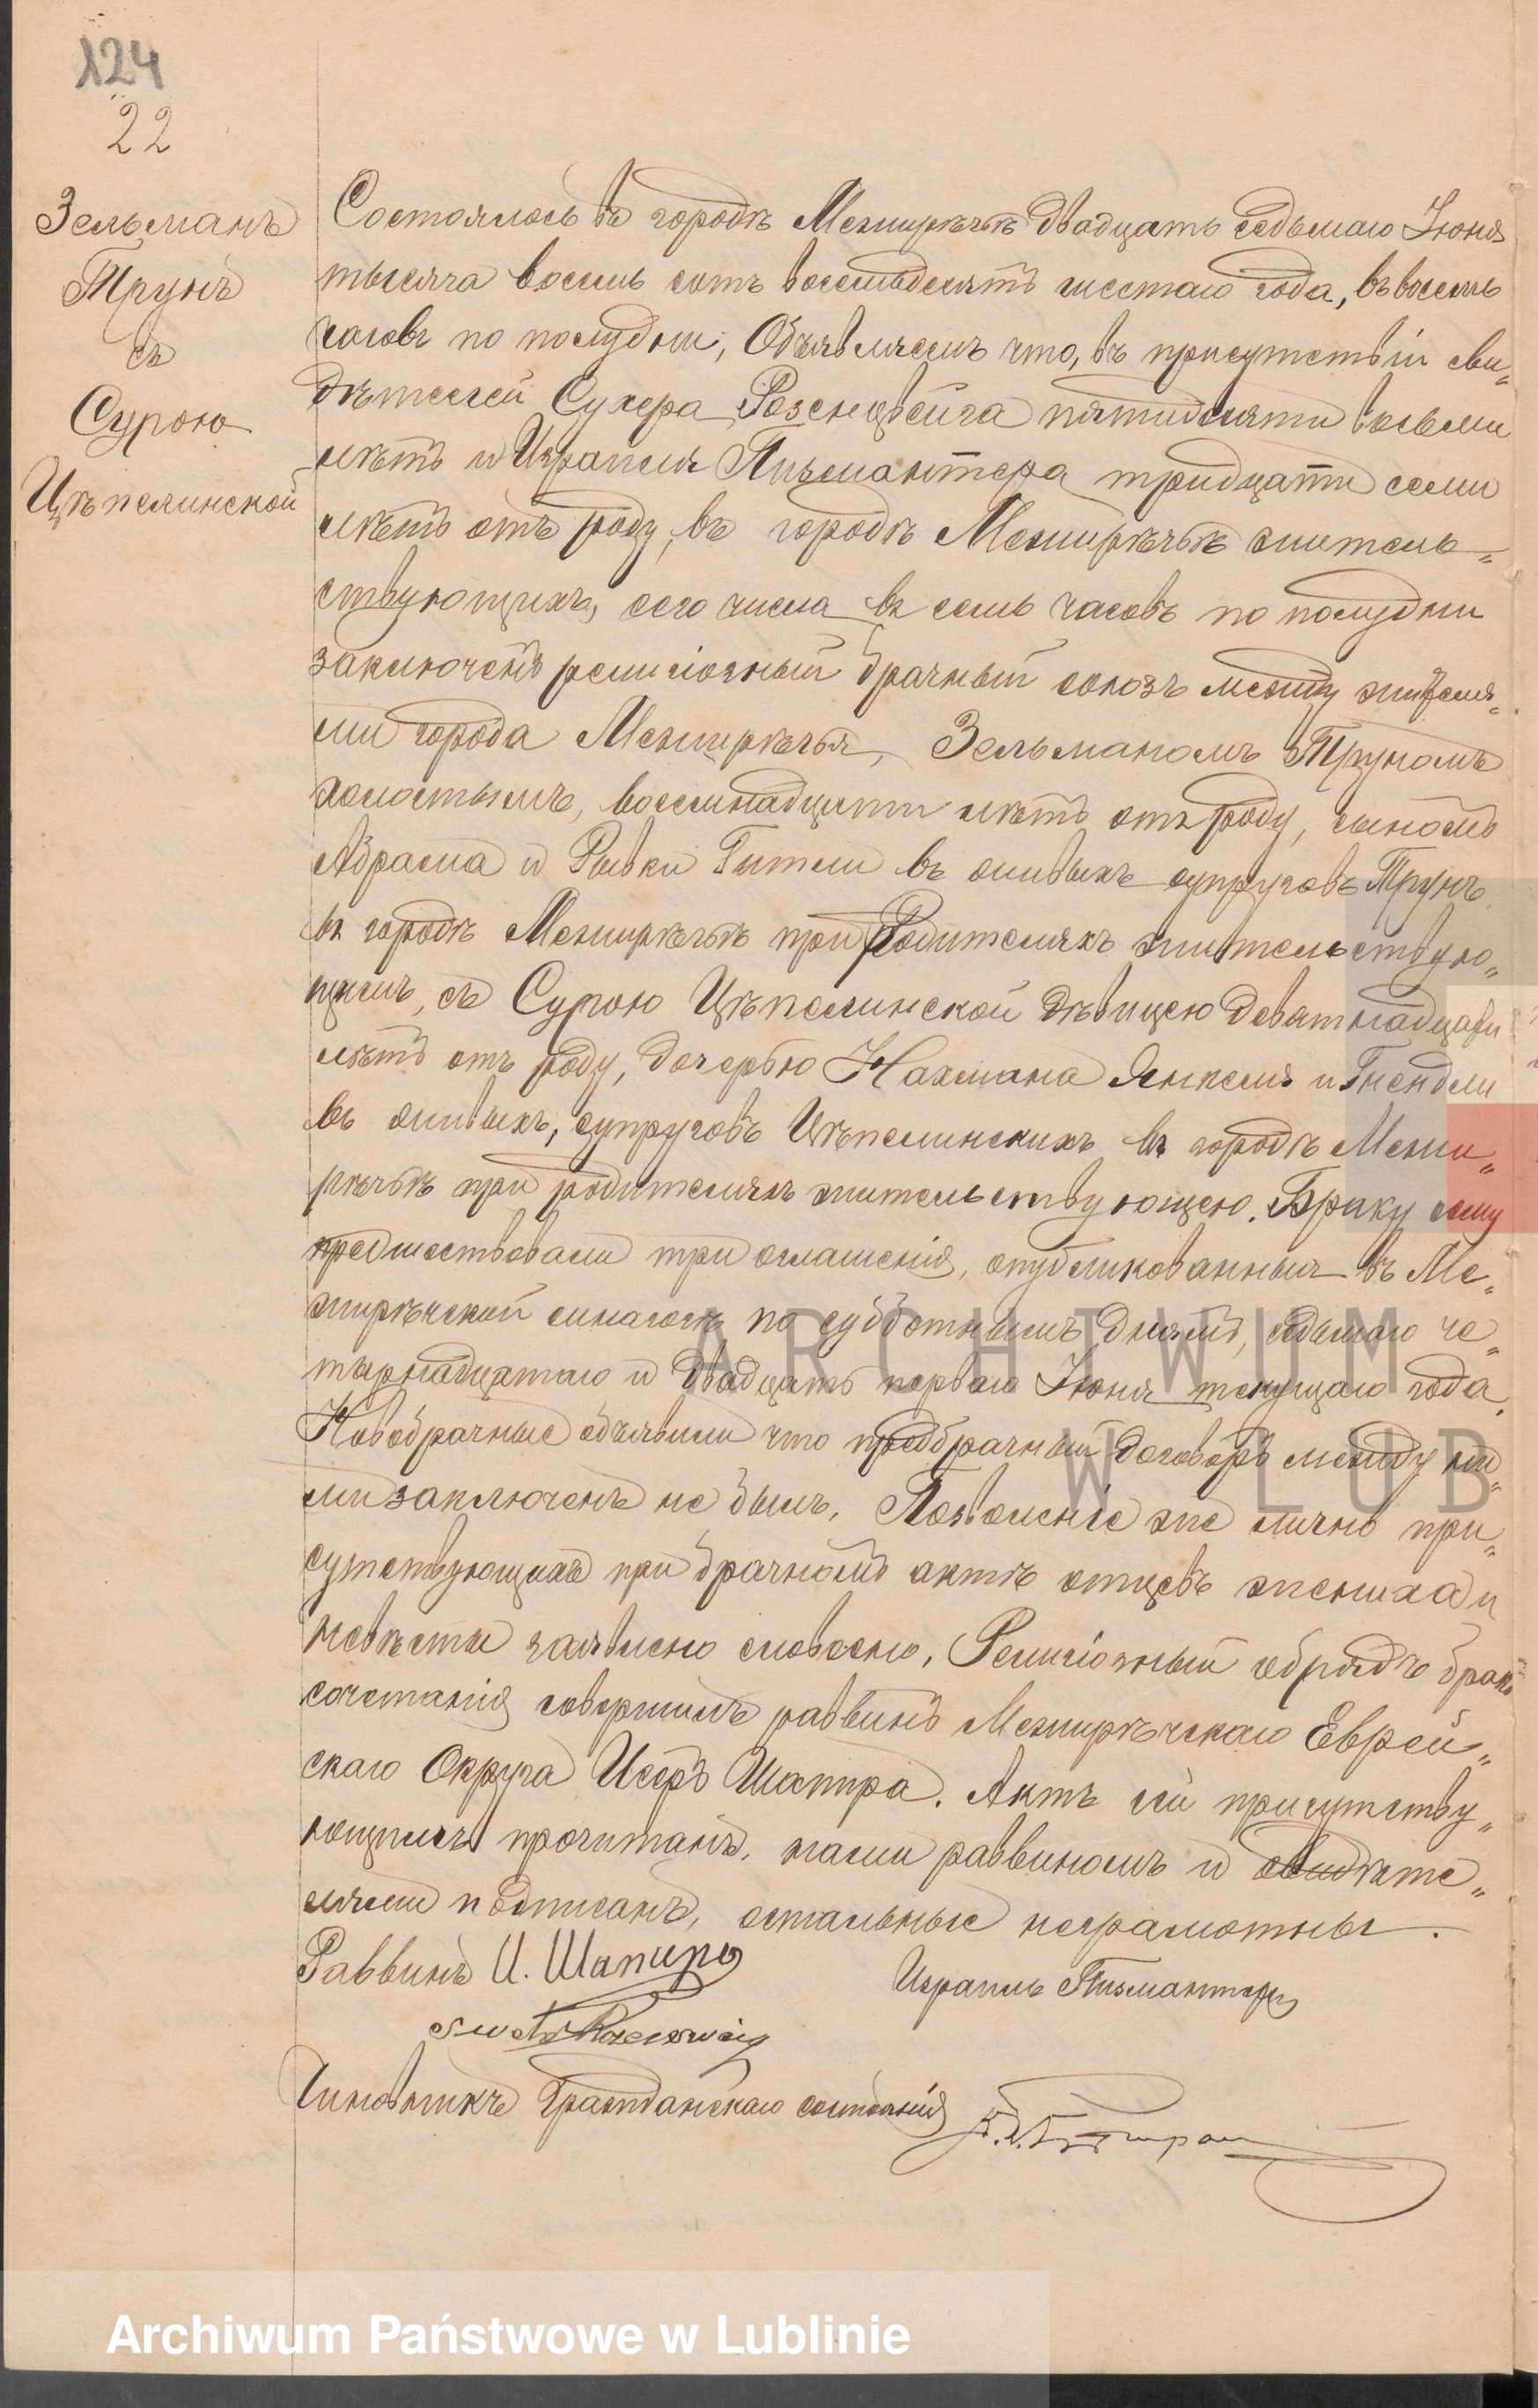 124
22
Зельманъ
Трунъ
съ
Сурою
Цѣпелинской
Состоялось въ городѣ Межирѣчьѣ двадцать седьмаго Іюня
тысяча восемь сотъ восемьдесятъ шестаго года, въ восемь
часовъ по полудни, Объявляемъ что, въ присутствіи сви„
дѣтелей Сухера Розенцвейга пятидесяти восьми
лѣтъ и Израиля Пизмантера тридцати семи
лѣтъ отъ роду, въ городѣ Межирѣчьѣ житель„
ствующихъ, сего числа въ семь часовъ по полудни
заключенъ религіозный брачный союзъ между жителя„
ми города Межирѣчья, Зельманомъ Труномъ
холостымъ, восемнадцати лѣтъ отъ роду, сыномъ
Абрама и Рывки Гитли въ живыхъ супруговъ Трунъ
въ городѣ Межирѣчьѣ при Родителяхъ жительствую„
щимъ, съ Сурою Цѣпелинской дѣвицею девятнадцати
лѣтъ отъ роду, дочерью Нахмана Янкеля и Гнендли
въ живыхъ, супруговъ Цѣпелинскихъ въ городѣ Межи„
рѣчьѣ при родителяхъ жительствующею. Браку сему
предшествовали три оглашенія, опубликованныя въ Ме„
жирѣчской синагогѣ по субботнымъ днямъ, седьмаго че„
тырнадцатаго и двадцать перваго Іюня текущаго года.
Новобрачные объявили что предбрачный договоръ между ни„
ми заключенъ не былъ. Позволеніе же лично при„
сутствующихъ при брачномъ актѣ отцевъ жениха и
невѣсты заявлено словесно. Религіозный обрядъ брако
сочетанія совершилъ раввинъ Межирѣчскаго Еврей„
скаго Округа Исеръ Шапира. Актъ сей присутству„
ющимъ прочитанъ, нами раввиномъ и свидѣте„
лями подписанъ, остальные неграмотны.
Раввинъ И. Шапиро
Израиль Пизмантеръ
Rozencweig
Чиновникъ Гражданскаго состоянія
ARCHIWUM
W LUB
Archiwum Państwowe w Lublinie